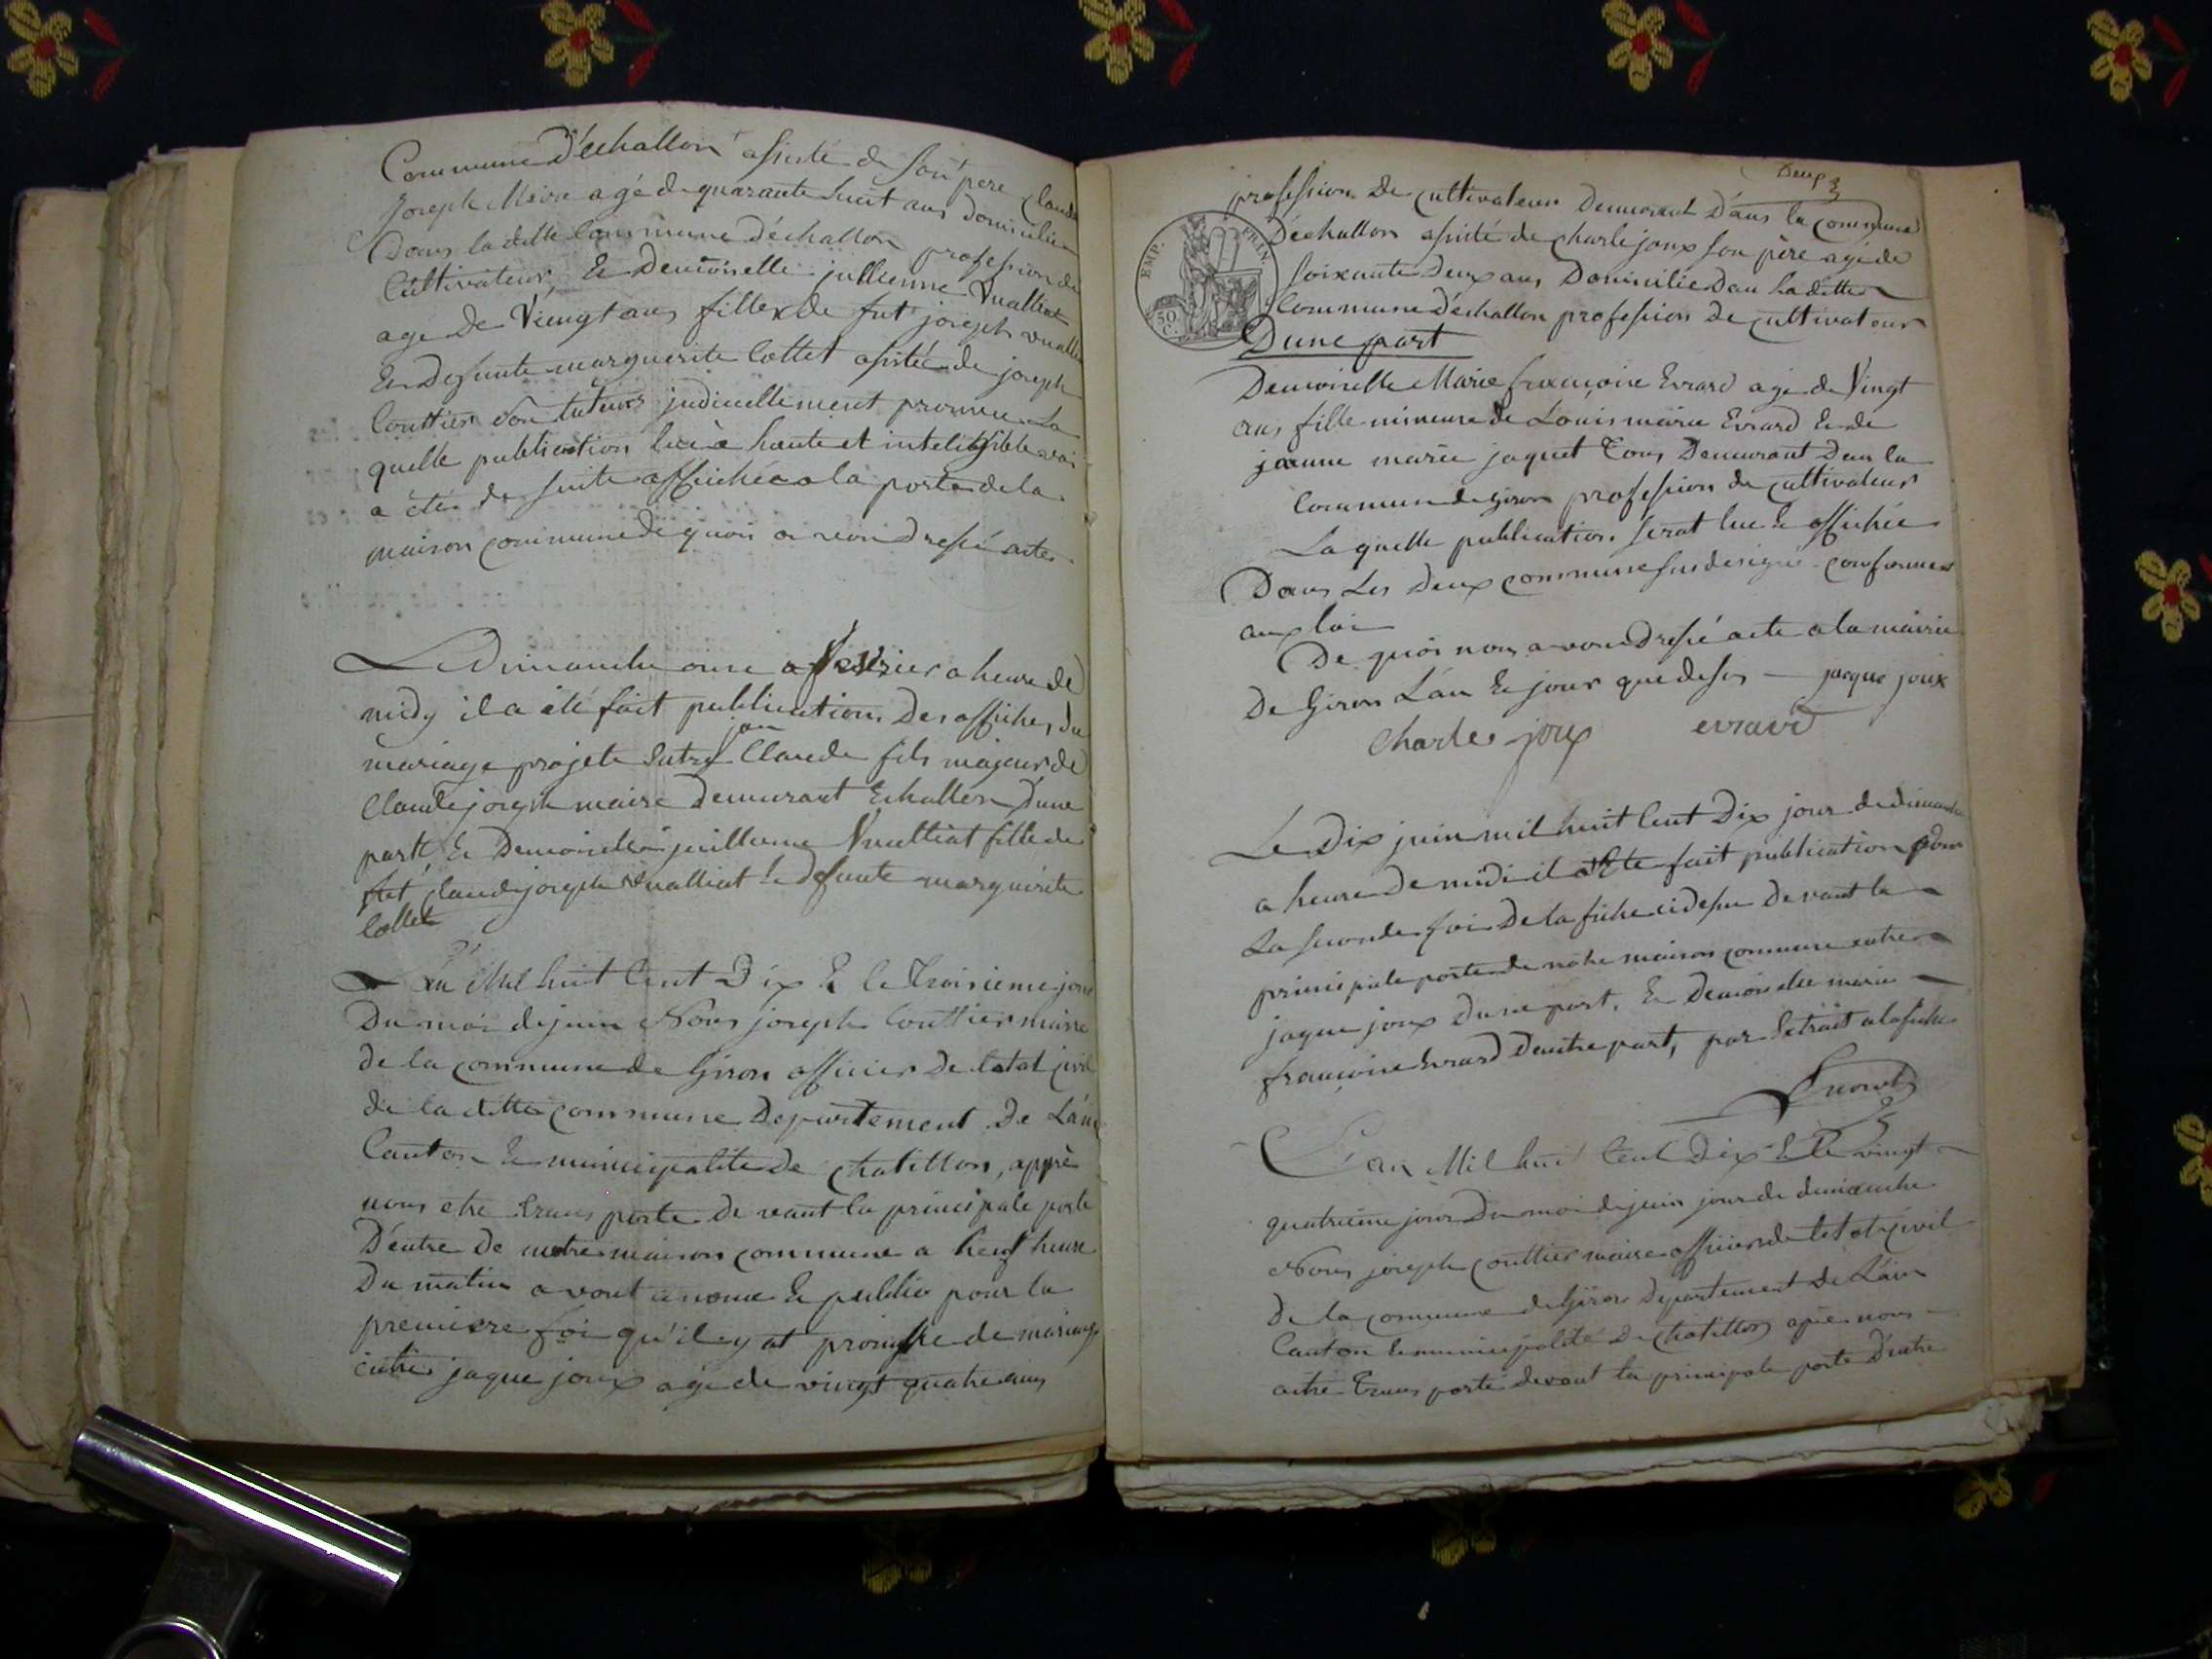 Commune d'échallon assisté de son pere Claude
Joseph Maire agé de quarante huit ans domicilié
Dans la ditte Commune d'échallon profession de
Cultivateur, Et Demoiselle jullienne Vualliat
age De Vingt ans fille de fut joseph vuallia
Et Defunte marguerite Collet assistée de joseph
Couttier son tuteur judiciellement La
quelle publication lue a haute et inteligible voi
a été de suite affichée a la porte de la
maison commune de quoi avons dressé acte
Le Dimanche onze fevrier a heure de
midy il a été fait publication Des affiches du
jan
mariage projeté Entre Claude fils majeur de
Claude joseph maire Demeurant Echallon D'une
part Et Demoiselle juillienne Vualliat fille de
fut Claude joseph Vualliat Et defunte marguerite
Collet
L'an Mil huit Cent Dix & le Troisieme jour
Du moi de juin Nous joseph Couttier maire
de la commune de Giron officier De létat civil
de la ditte commune Departement De L'ain
Canton & municipalité de Chatillon, apprè
nous etre trans porté de vant la principale porte
D'entre De notre maison commune a heure
Du matin avont anonce & publié pour la
premiere foi qu'il y at promesse de mariage
entre jaque joux age de vingt quatre ans
Deux
profession De Cultivateur Demeurant D'ans la Commune
D'échallon assisté de Charle joux son père agé de
soixante Deux ans Domicilié Dan La ditte
Commune d'échallon profession De Cultivateur
EMP. FRAN.
50 C.
Dune part
Demoiselle Marie françoise Evrard age de Vingt
ans fille mineure de Louis marie Evrard Et de
jeanne marie jaquet Tous Demeurant Dans la
Commune de Giron profession de cultivateur
La quelle publication serat lue & affichée
Dans Les Deux commune susdésigné conformement
aux loi
De quoi nous avons dressé acte a la mairie
De Giron L'an & jour que desus — jacque joux
Charle joux evrard
Le Dix juin mil huit Cent Dix jour de dimanche
a heure De midi il a Eté fait publication pour
La seconde foi De la fiche ci desu De vant la
principale porte de notre maison commune entre
jaque joux Dune part, Et Demoiselle marie
françoise Evrard Dautre part, par Extrait a la fiche
L'an Mil huit Cent Dix & Le vingt
quatrieme jour Du moi de juin jour de dimanche
Nous joseph Couttier maire officier de létat civil
De la commune de Giron Departement De L'ain
Canton & municipalité De Chatillon apré nous
aitre Trans porté devant la principale porte D'entre